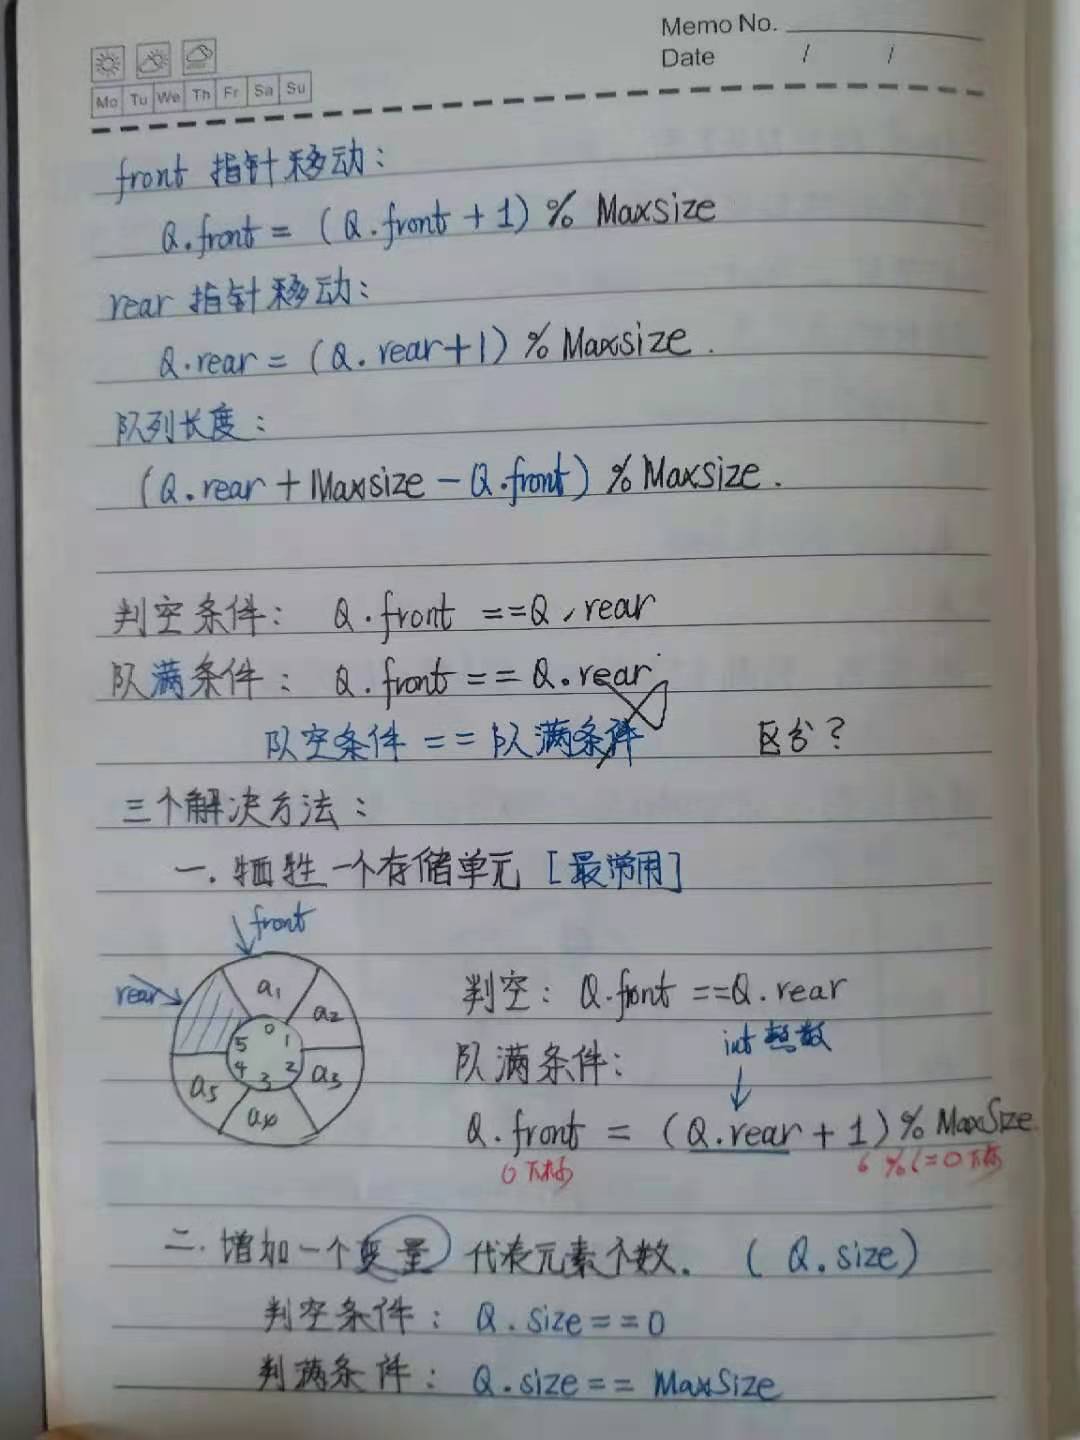 Memo No.
Date / /
Mo Tu We Th Fr Sa Su
front 指针移动:
Q.front = (Q.front + 1) % Maxsize
rear 指针移动:
Q.rear = (Q.rear+1) % Maxsize.
队列长度:
(Q.rear + Maxsize - Q.front) % Maxsize.
判空条件: Q.front ==Q.rear
队满条件: Q.front == Q.rear
队空条件 == 队满条件 区分?
三个解决方法:
一. 牺牲一个存储单元 [最常用]
front
rear
a1
a2
a3
a4
a5
0 1 2 3 4 5
判空: Q.front ==Q.rear
int 整数
队满条件:
Q.front = (Q.rear + 1) % MaxSize.
0下标 6 % 6 = 0下标
二. 增加一个变量 代表元素个数. (Q.size)
判空条件: Q.size == 0
判满条件: Q.size == MaxSize